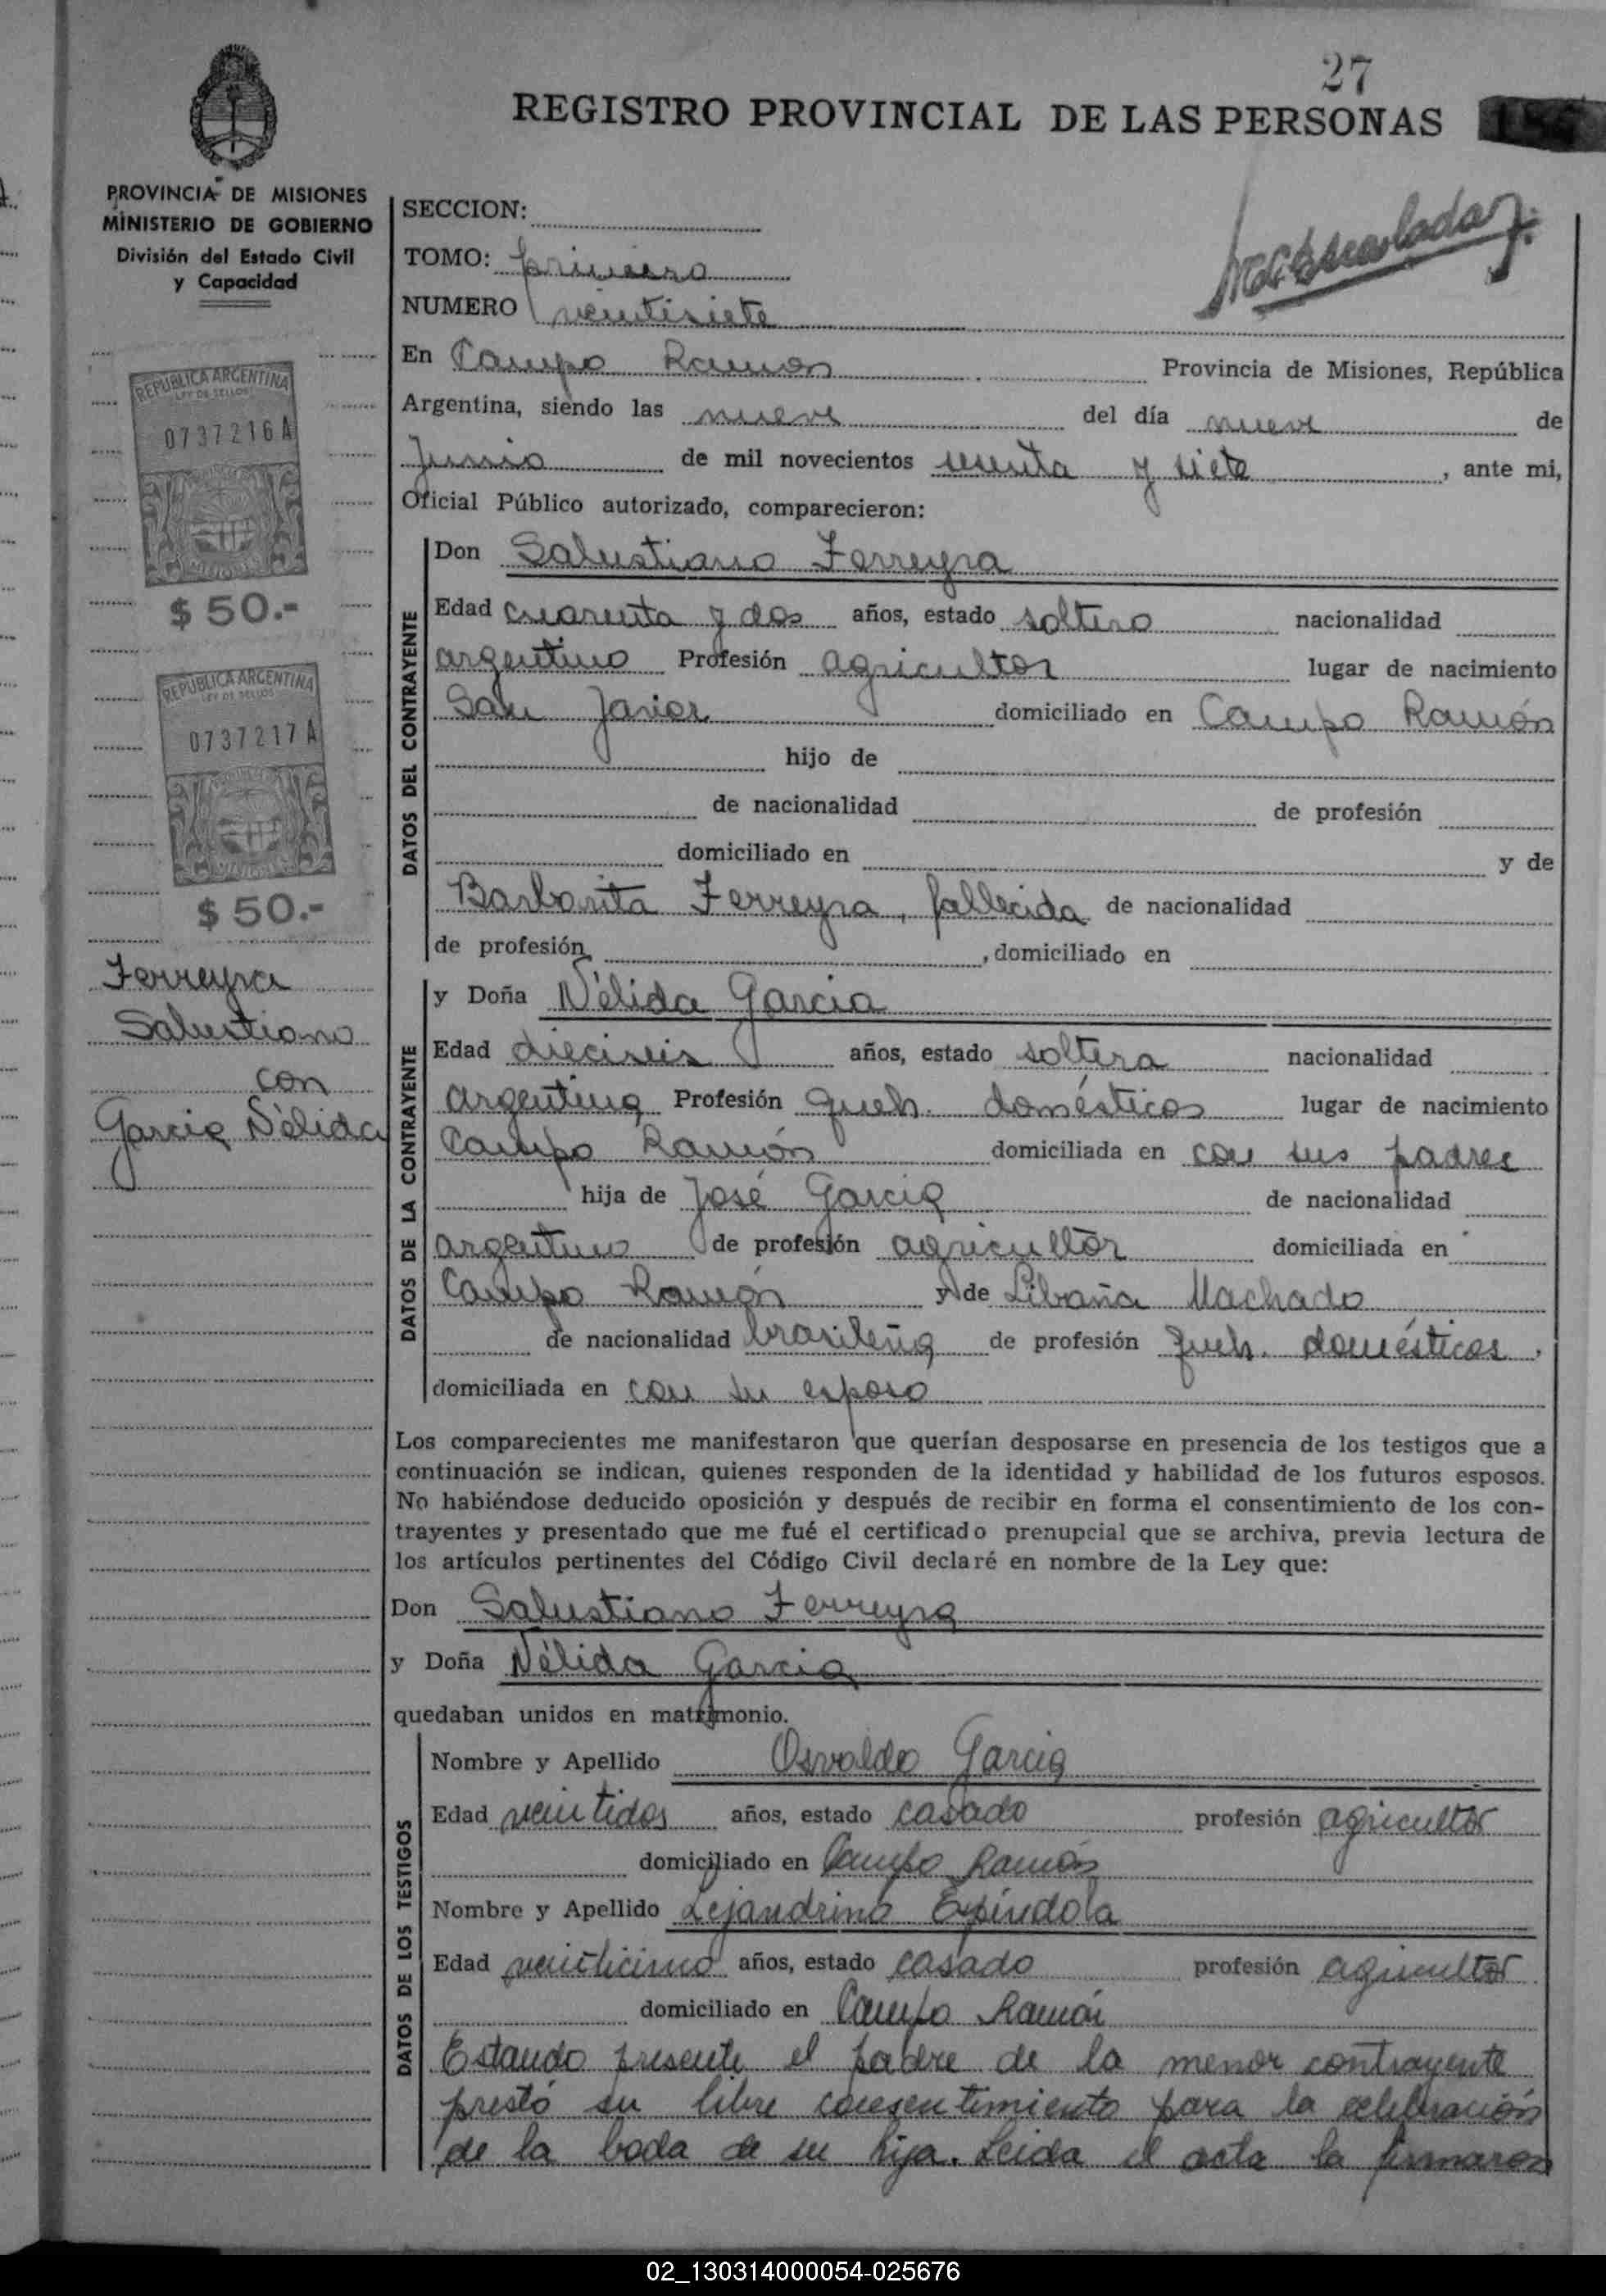 27
REGISTRO PROVINCIAL DE LAS PERSONAS
PROVINCIA DE MISIONES
MINISTERIO DE GOBIERNO
División del Estado Civil
y Capacidad
SECCION:
TOMO: primero
NUMERO veintisiete
En Campo Ramon Provincia de Misiones, República
Argentina, siendo las nueve del día nueve de
Junio de mil novecientos sesenta y siete, ante mi,
Oficial Público autorizado, comparecieron:
REPUBLICA ARGENTINA
LEY DE SELLOS
0737216 A
MISIONES
$ 50.-
REPUBLICA ARGENTINA
LEY DE SELLOS
0737217 A
$ 50.-
Ferreyra
Salustiano
con
Garcia Nélida
DATOS DEL CONTRAYENTE
Don Salustiano Ferreyra
Edad cuarenta y dos años, estado soltero nacionalidad
argentino Profesión agricultor lugar de nacimiento
San Javier domiciliado en Campo Ramón
hijo de
de nacionalidad de profesión
domiciliado en y de
Barbarita Ferreyra, fallecida de nacionalidad
de profesión, domiciliado en
DATOS DE LA CONTRAYENTE
y Doña Nélida Garcia
Edad dieciseis años, estado soltera nacionalidad
argentina Profesión queh. domésticos lugar de nacimiento
Campo Ramón domiciliada en con sus padres
hija de José Garcia de nacionalidad
argentino de profesión agricultor domiciliada en
Campo Ramón y de Libaña Machado
de nacionalidad brasileña de profesión queh. domésticos,
domiciliada en con su esposo
Los comparecientes me manifestaron que querían desposarse en presencia de los testigos que a
continuación se indican, quienes responden de la identidad y habilidad de los futuros esposos.
No habiéndose deducido oposición y después de recibir en forma el consentimiento de los con-
trayentes y presentado que me fué el certificado prenupcial que se archiva, previa lectura de
los artículos pertinentes del Código Civil declaré en nombre de la Ley que:
Don Salustiano Ferreyra
y Doña Nélida Garcia
quedaban unidos en matrimonio.
DATOS DE LOS TESTIGOS
Nombre y Apellido Osvaldo Garcia
Edad veintidos años, estado casado profesión agricultor
domiciliado en Campo Ramón
Nombre y Apellido Lejandrino Espíndola
Edad veinticinco años, estado casado profesión agricultor
domiciliado en Campo Ramón
Estando presente el padre de la menor contrayente
prestó su libre consentimiento para la celebración
de la boda de su hija. Leida el acta la firmaron
02_130314000054-025676